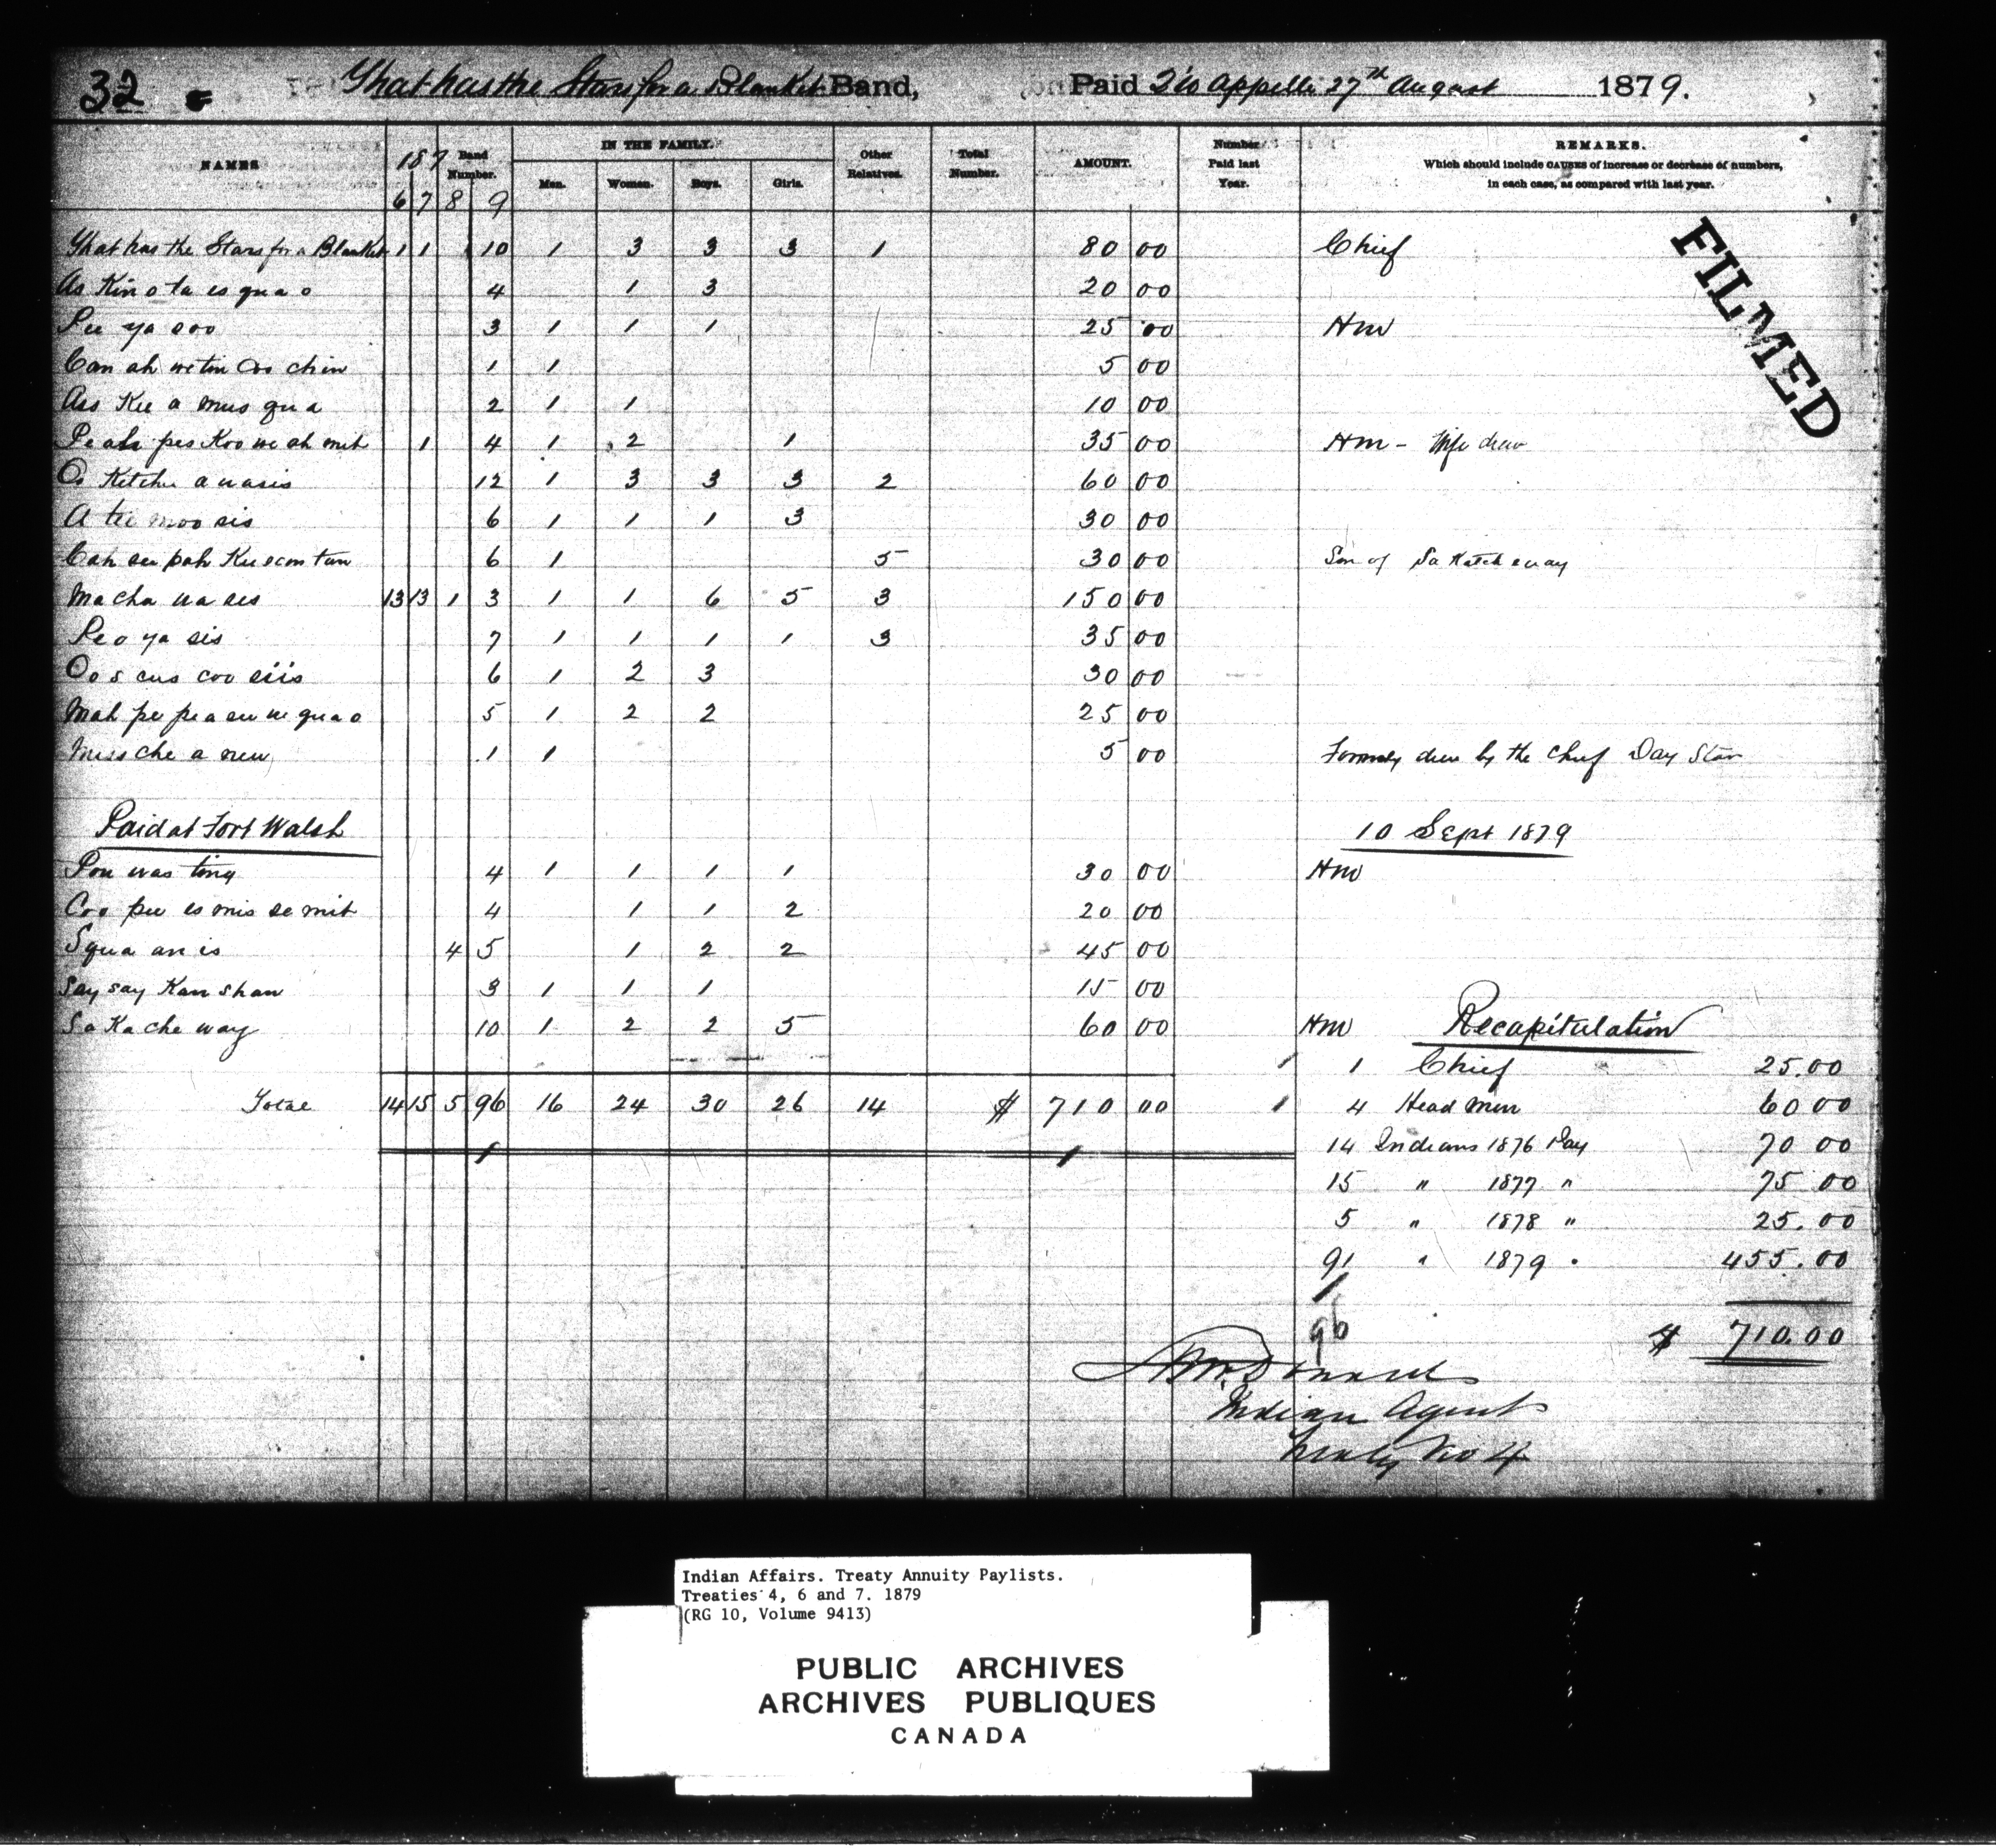 32
That has the Stars for a Blanket Band, Paid Qu'Appelle 27th August 1879.
NAMES 187 Band Number. IN THE FAMILY. Other Relatives. Total Number. AMOUNT. Number Paid last Year. REMARKS.
Which should include CAUSES of increase or decrease of numbers, in each case, as compared with last year.
6 7 8 9 Men. Women. Boys. Girls.
That has the Stars for a Blanket 1 1 10 1 3 3 3 1 80 00 Chief
As Kin o ta es qua o 4 1 3 20 00
Pee ya soo 3 1 1 1 25 00 Hm
Can ah we tin Coo chin 1 1 5 00
Ass Kee a mus qua 2 1 1 10 00
Pe ah pes Koo we ah mit 1 4 1 2 1 35 00 Hm - Wife drew
O Ketche a wasis 12 1 3 3 3 2 60 00
A tee moo sis 6 1 1 1 3 30 00
Cah see pah Kee scon tum 6 1 5 30 00 Son of Sa Katch eway
Ma cha wa sis 13 13 1 3 1 1 6 5 3 150 00
Pe o ya sis 7 1 1 1 1 3 35 00
Oo s cus coo siis 6 1 2 3 30 00
Mah pe pe a see we qua o 5 1 2 2 25 00
Miss che a new 1 1 5 00 Formerly drew by the Chief Day Star
Paid at Fort Walsh 10 Sept 1879
Pon was ting 4 1 1 1 1 30 00 Hm
Coo pee es mis se mit 4 1 1 2 20 00
Squa an is 4 5 1 2 2 45 00
Say say Kan shan 3 1 1 1 15 00
Sa Ka che way 10 1 2 2 5 60 00 Hm
Recapitulation
1 Chief 25.00
Total 14 15 5 96 16 24 30 26 14 $ 710 00
4 Head Men 60 00
14 Indians 1876 Pay 70 00
15 " 1877 " 75 00
5 " 1878 " 25.00
91 " 1879 " 455.00
96
$ 710.00
A McDonald
Indian Agent
Treaty No 4
FILMED
Indian Affairs. Treaty Annuity Paylists.
Treaties 4, 6 and 7. 1879
(RG 10, Volume 9413)
PUBLIC ARCHIVES
ARCHIVES PUBLIQUES
CANADA